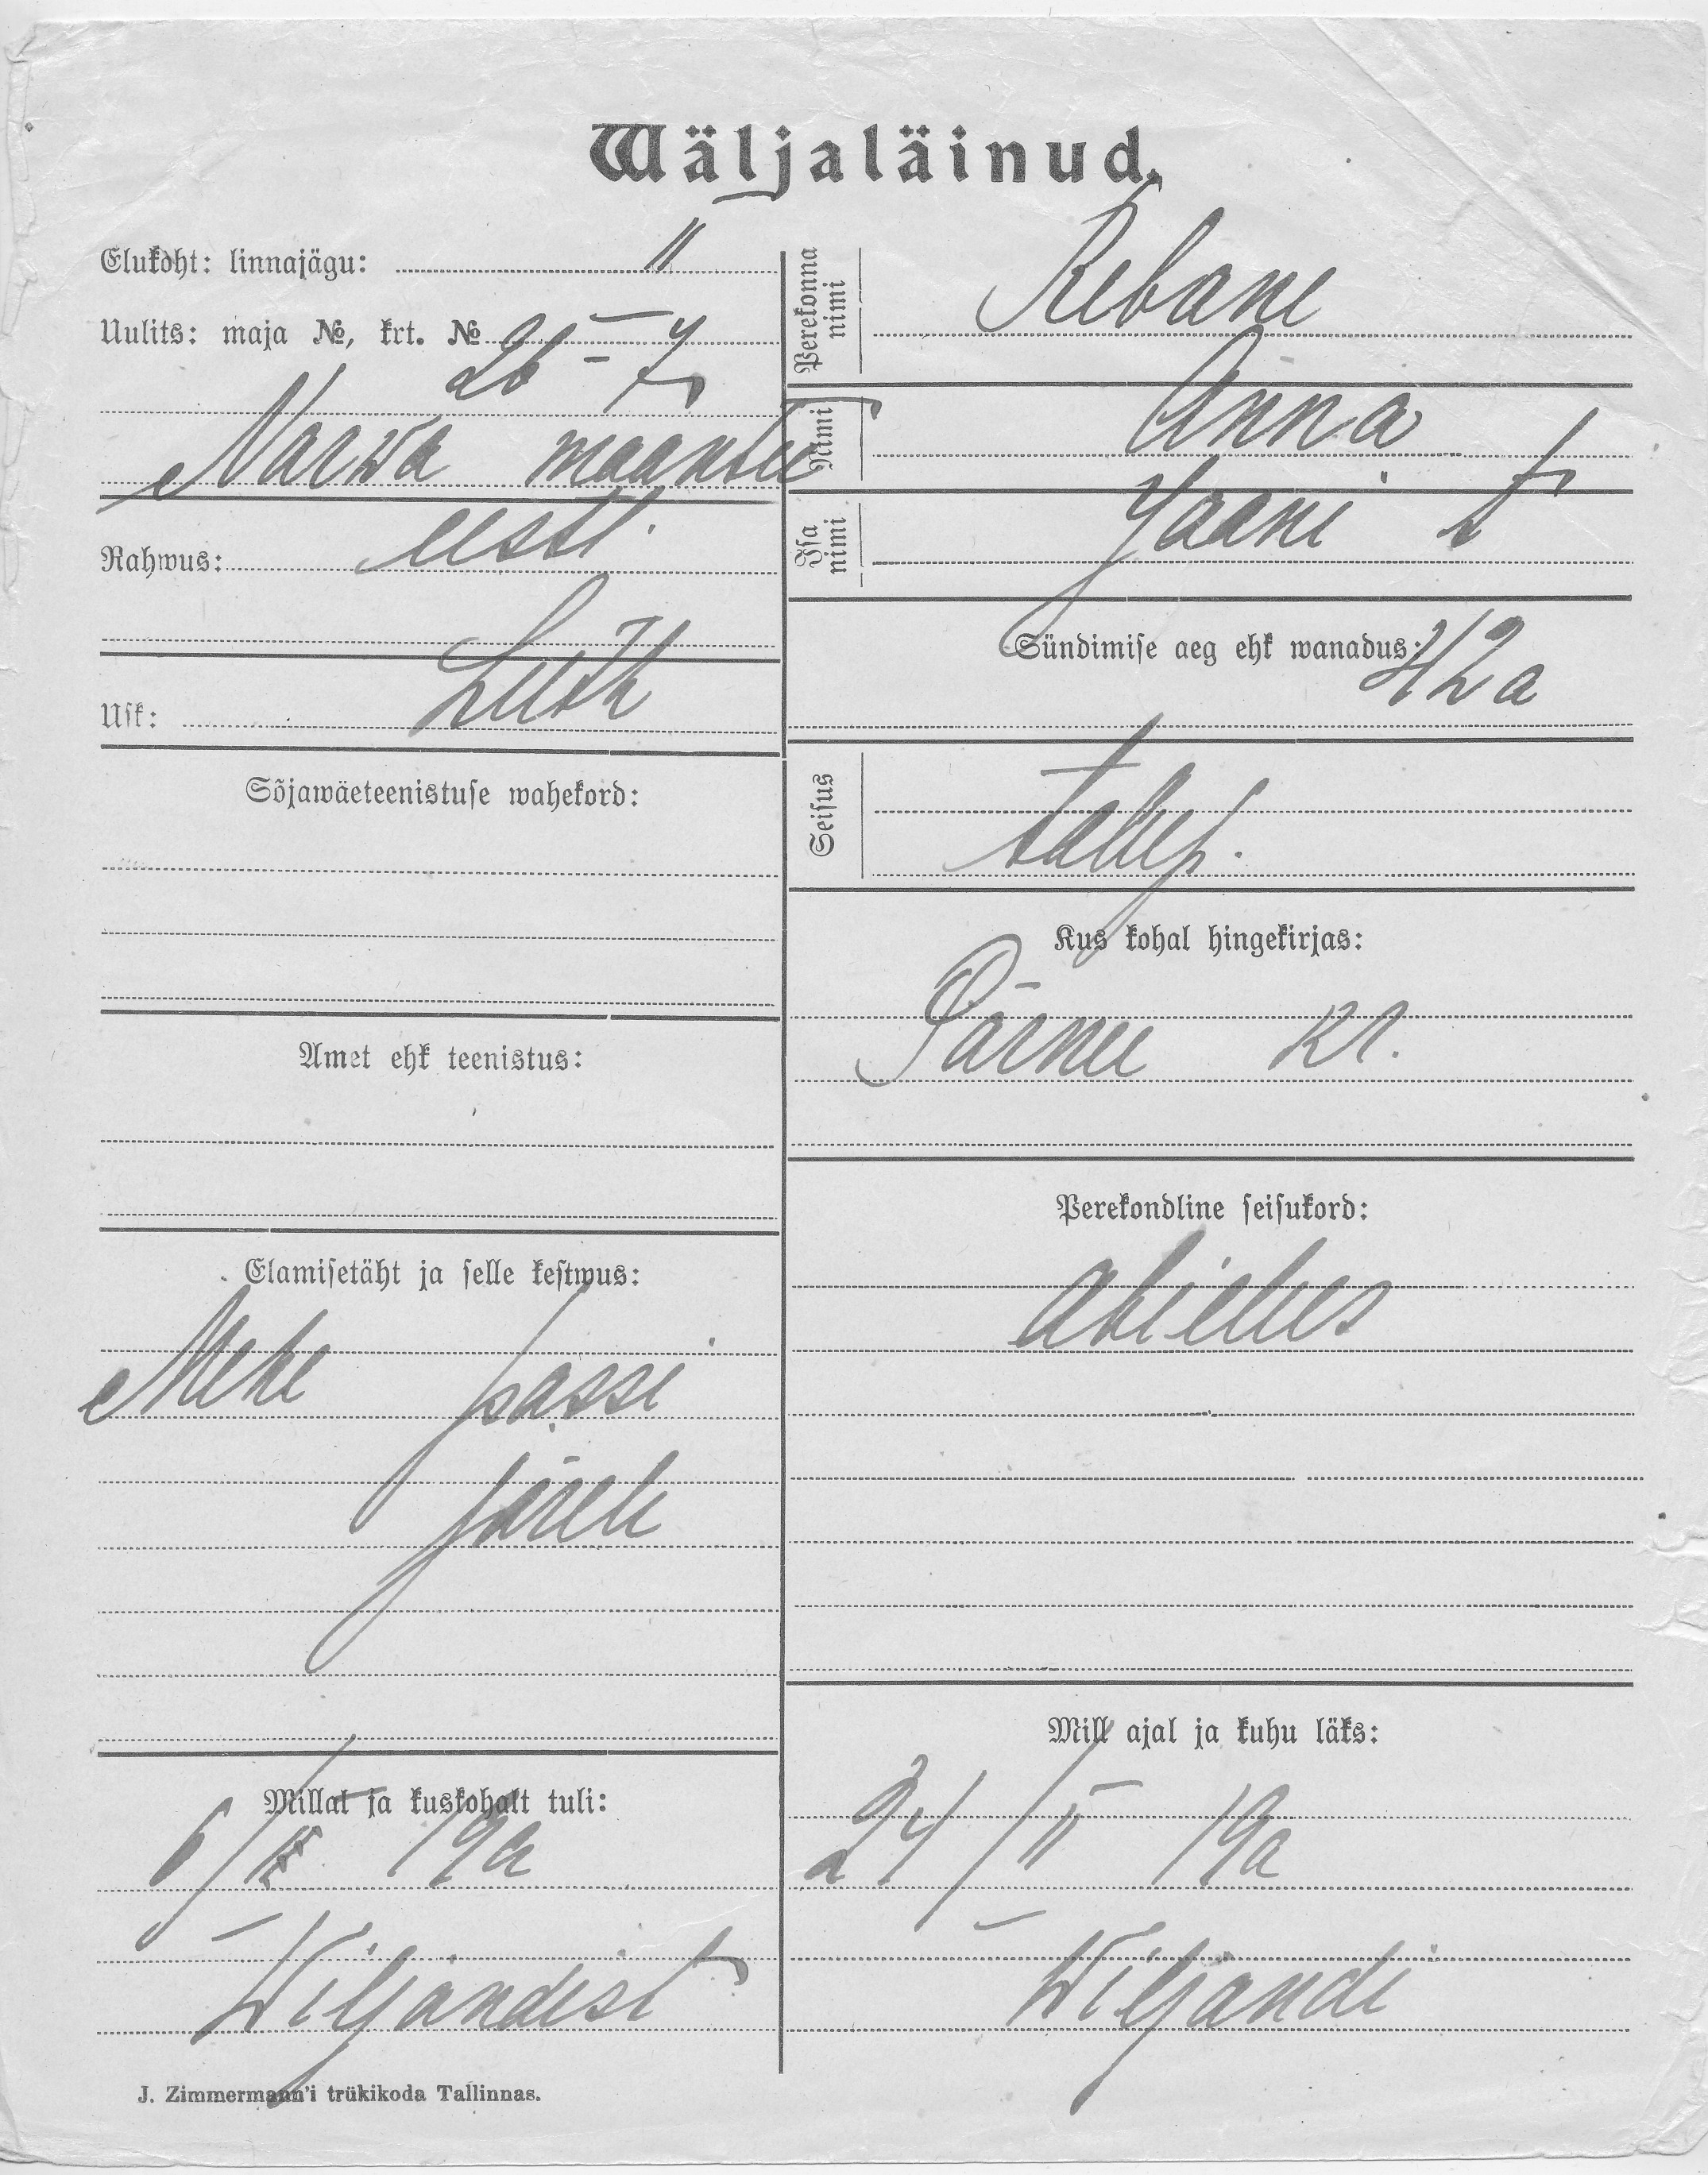 Wäljaläinud.
Elukoht: linnajägu: II
Uulits: maja №, krt. № 26 – 7
Narwa maantee
Rahwus: eesti
Usk: Luth
Sõjawäeteenistuse wahekord:
Amet ehk teenistus:
Elamisetäht ja selle kestwus:
Mehe passi
järele
Millal ja kuskohalt tuli:
6/II 19a
Wiljandist
J. Zimmermann'i trükikoda Tallinnas.
Perekonna nimi Rebane
Nimi Anna
Isa nimi Jaani t
Sündimise aeg ehk wanadus: 42 a
Seisus talup.
Kus kohal hingekirjas:
Pärnu kr.
Perekondline seisukord:
abielus
Mill ajal ja kuhu läks:
24/II 19a
Wiljandi